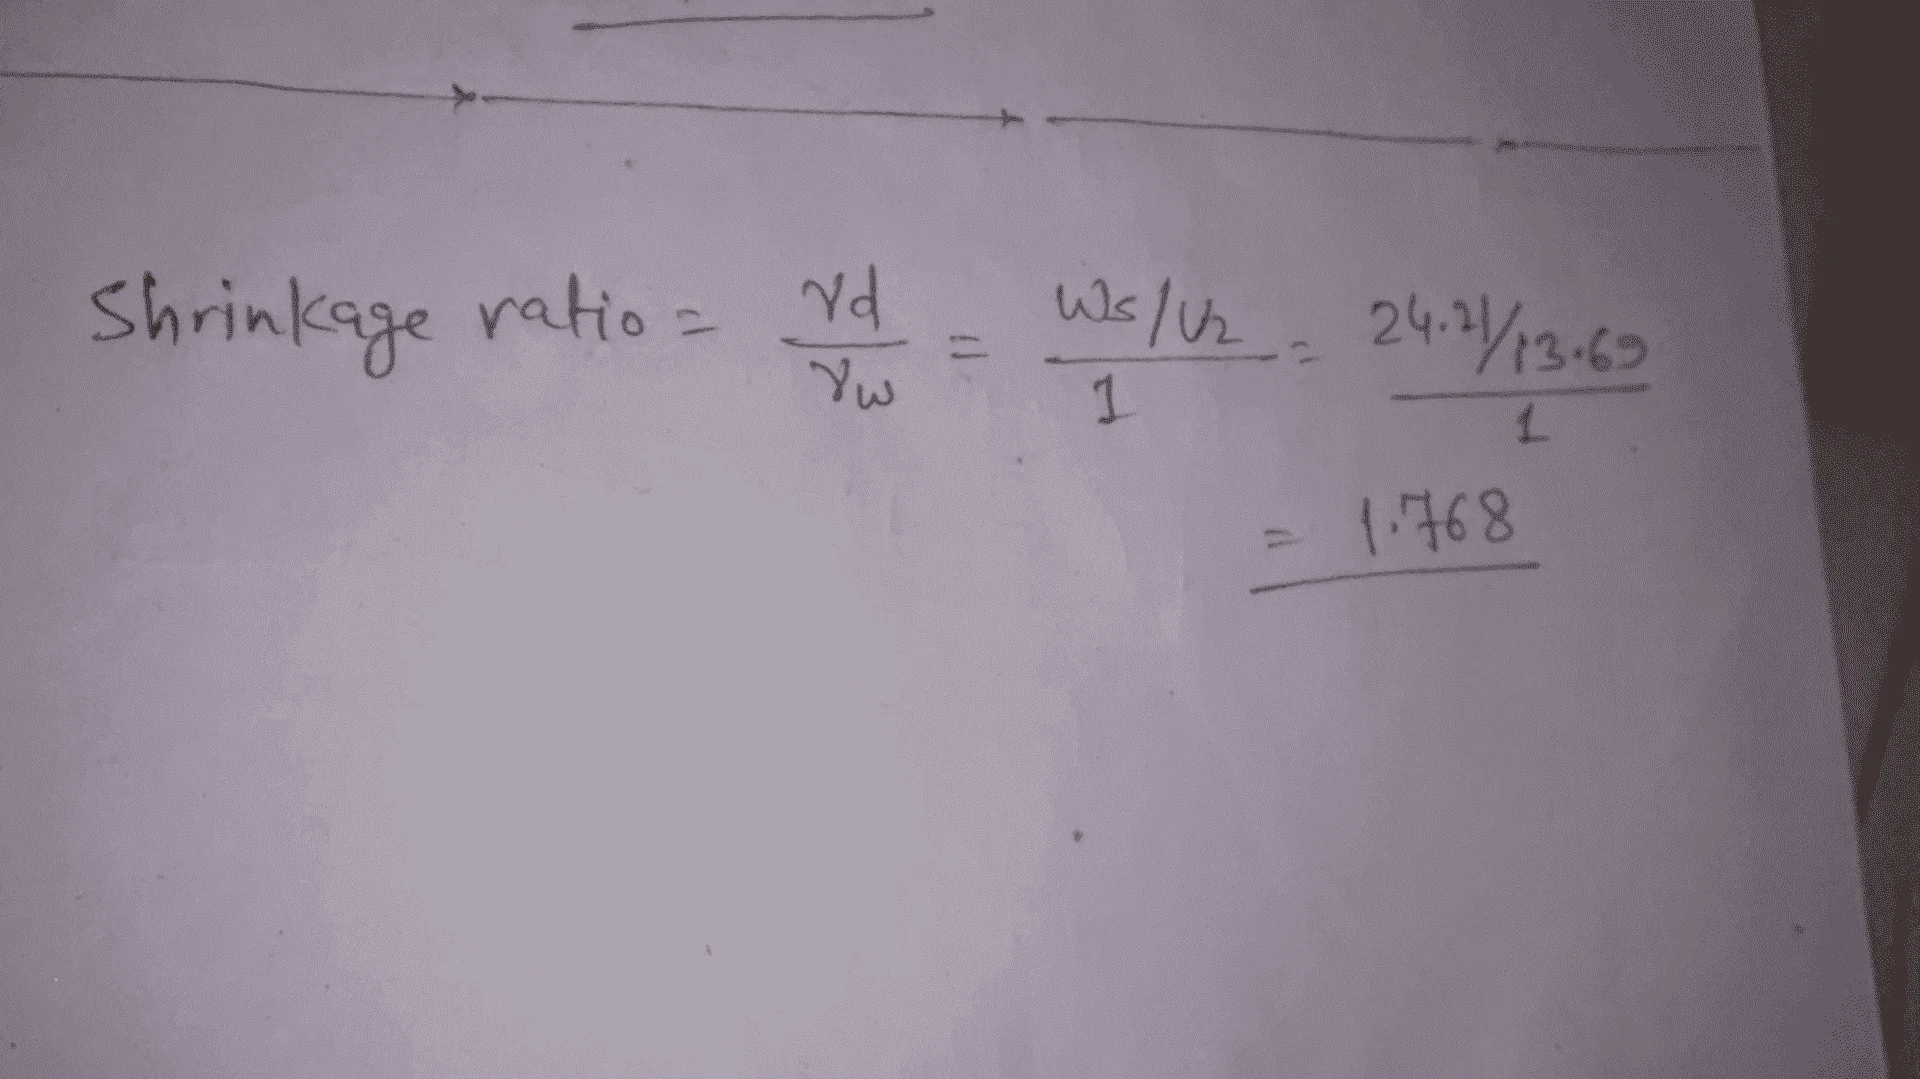 Shrinkage ratio = γd/γw = (Ws/V2)/1 = (24.21/13.69)/1
= 1.768